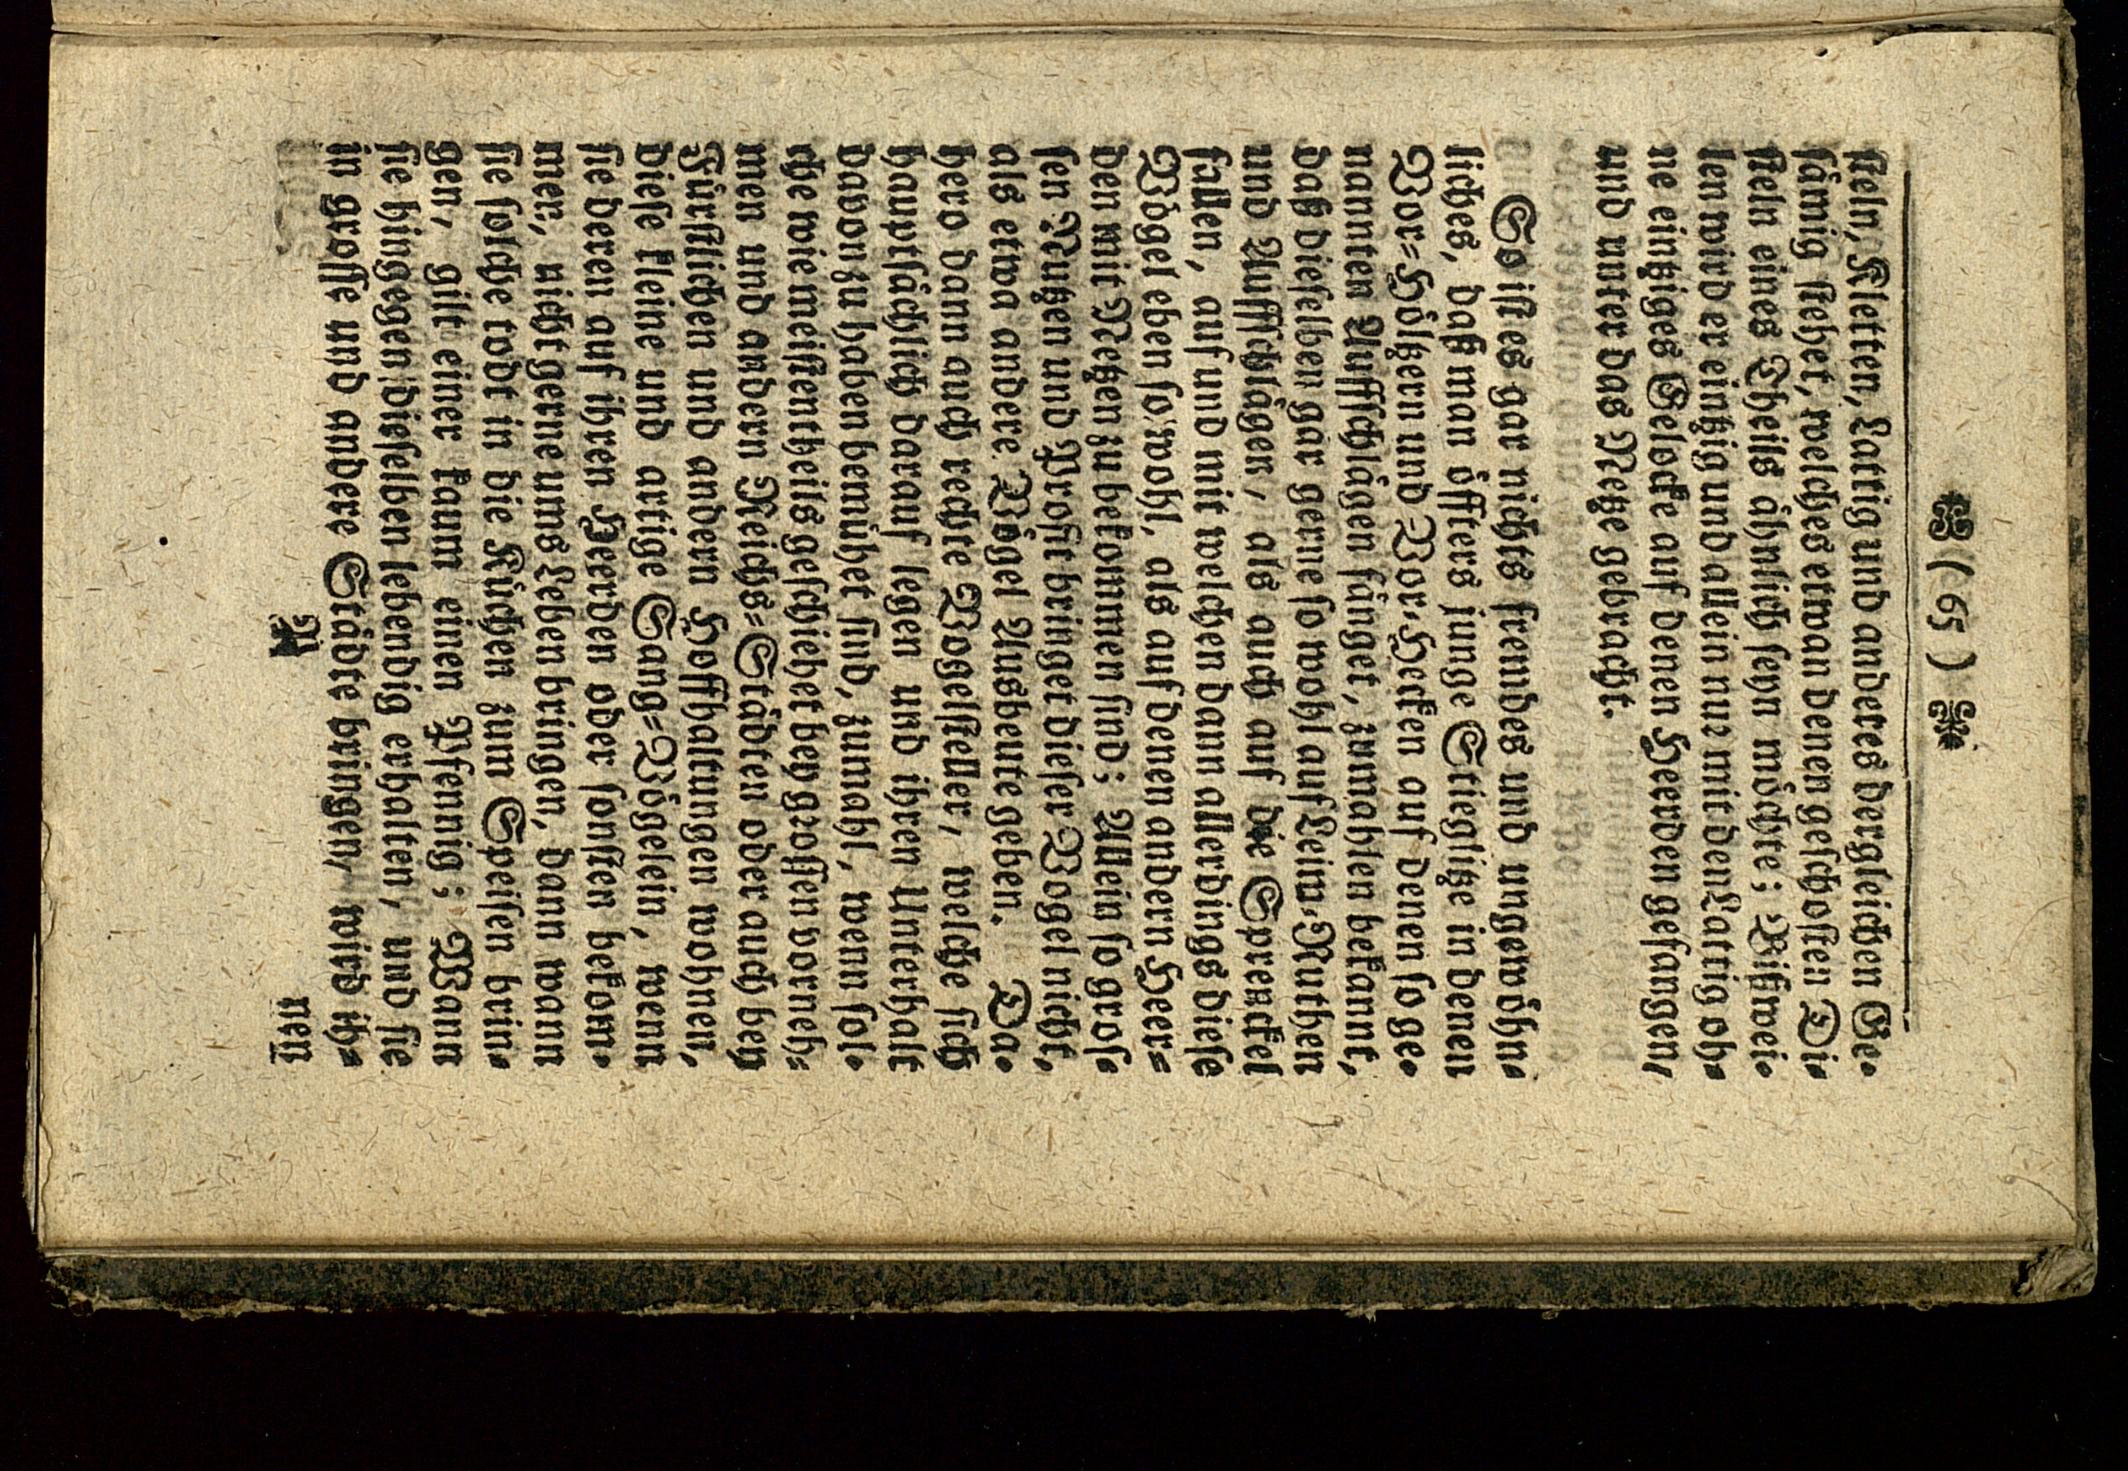 ( 65 )
steln, Kletten, Lattig und anderes dergleichen Ge-
sämig stehet, welches etwan denen geschossen Di-
steln eines Theils ähnlich seyn möchte; Bißwei-
len wird er eintzig und allein nur mit den Lattig oh-
ne eintziges Gelocke auf denen Heerden gefangen,
und unter das Netze gebracht.
So ist es gar nichts fremdes und ungewöhn-
liches, daß man öffters junge Stieglitze in denen
Vor-Höltzern und Vor-Hecken auf denen so ge-
nannten Auffschlägen fänget, zumahlen bekannt,
daß dieselben gar gerne so wohl auf Leim-Ruthen
und Auffschlägen, als auch auf die Sprenckel
fallen, auf und mit welchen dann allerdings diese
Vögel eben so wohl, als auf denen andern Heer-
den mit Netzen zu bekommen sind; Allein so gros-
sen Nutzen und Profit bringet dieser Vogel nicht,
als etwa andere Vögel Ausbeute geben. Da-
hero dann auch rechte Vogelsteller, welche sich
hauptsächlich darauf legen und ihren Unterhalt
davon zu haben bemühet sind, zumahl, wenn sol-
che wie meistentheils geschiehet bey grossen vorneh-
men und andern Reichs-Städten oder auch bey
Fürstlichen und andern Hoffhaltungen wohnen,
diese kleine und artige Sang-Vögelein, wenn
sie deren auf ihren Heerden oder sonsten bekom-
men, nicht gerne ums Leben bringen, dann wann
sie solche todt in die Küchen zum Speisen brin-
gen, gilt einer kaum einen Pfennig; Wann
sie hingegen dieselben lebendig erhalten, und sie
in grosse und andere Städte bringen, wird ih-
nen